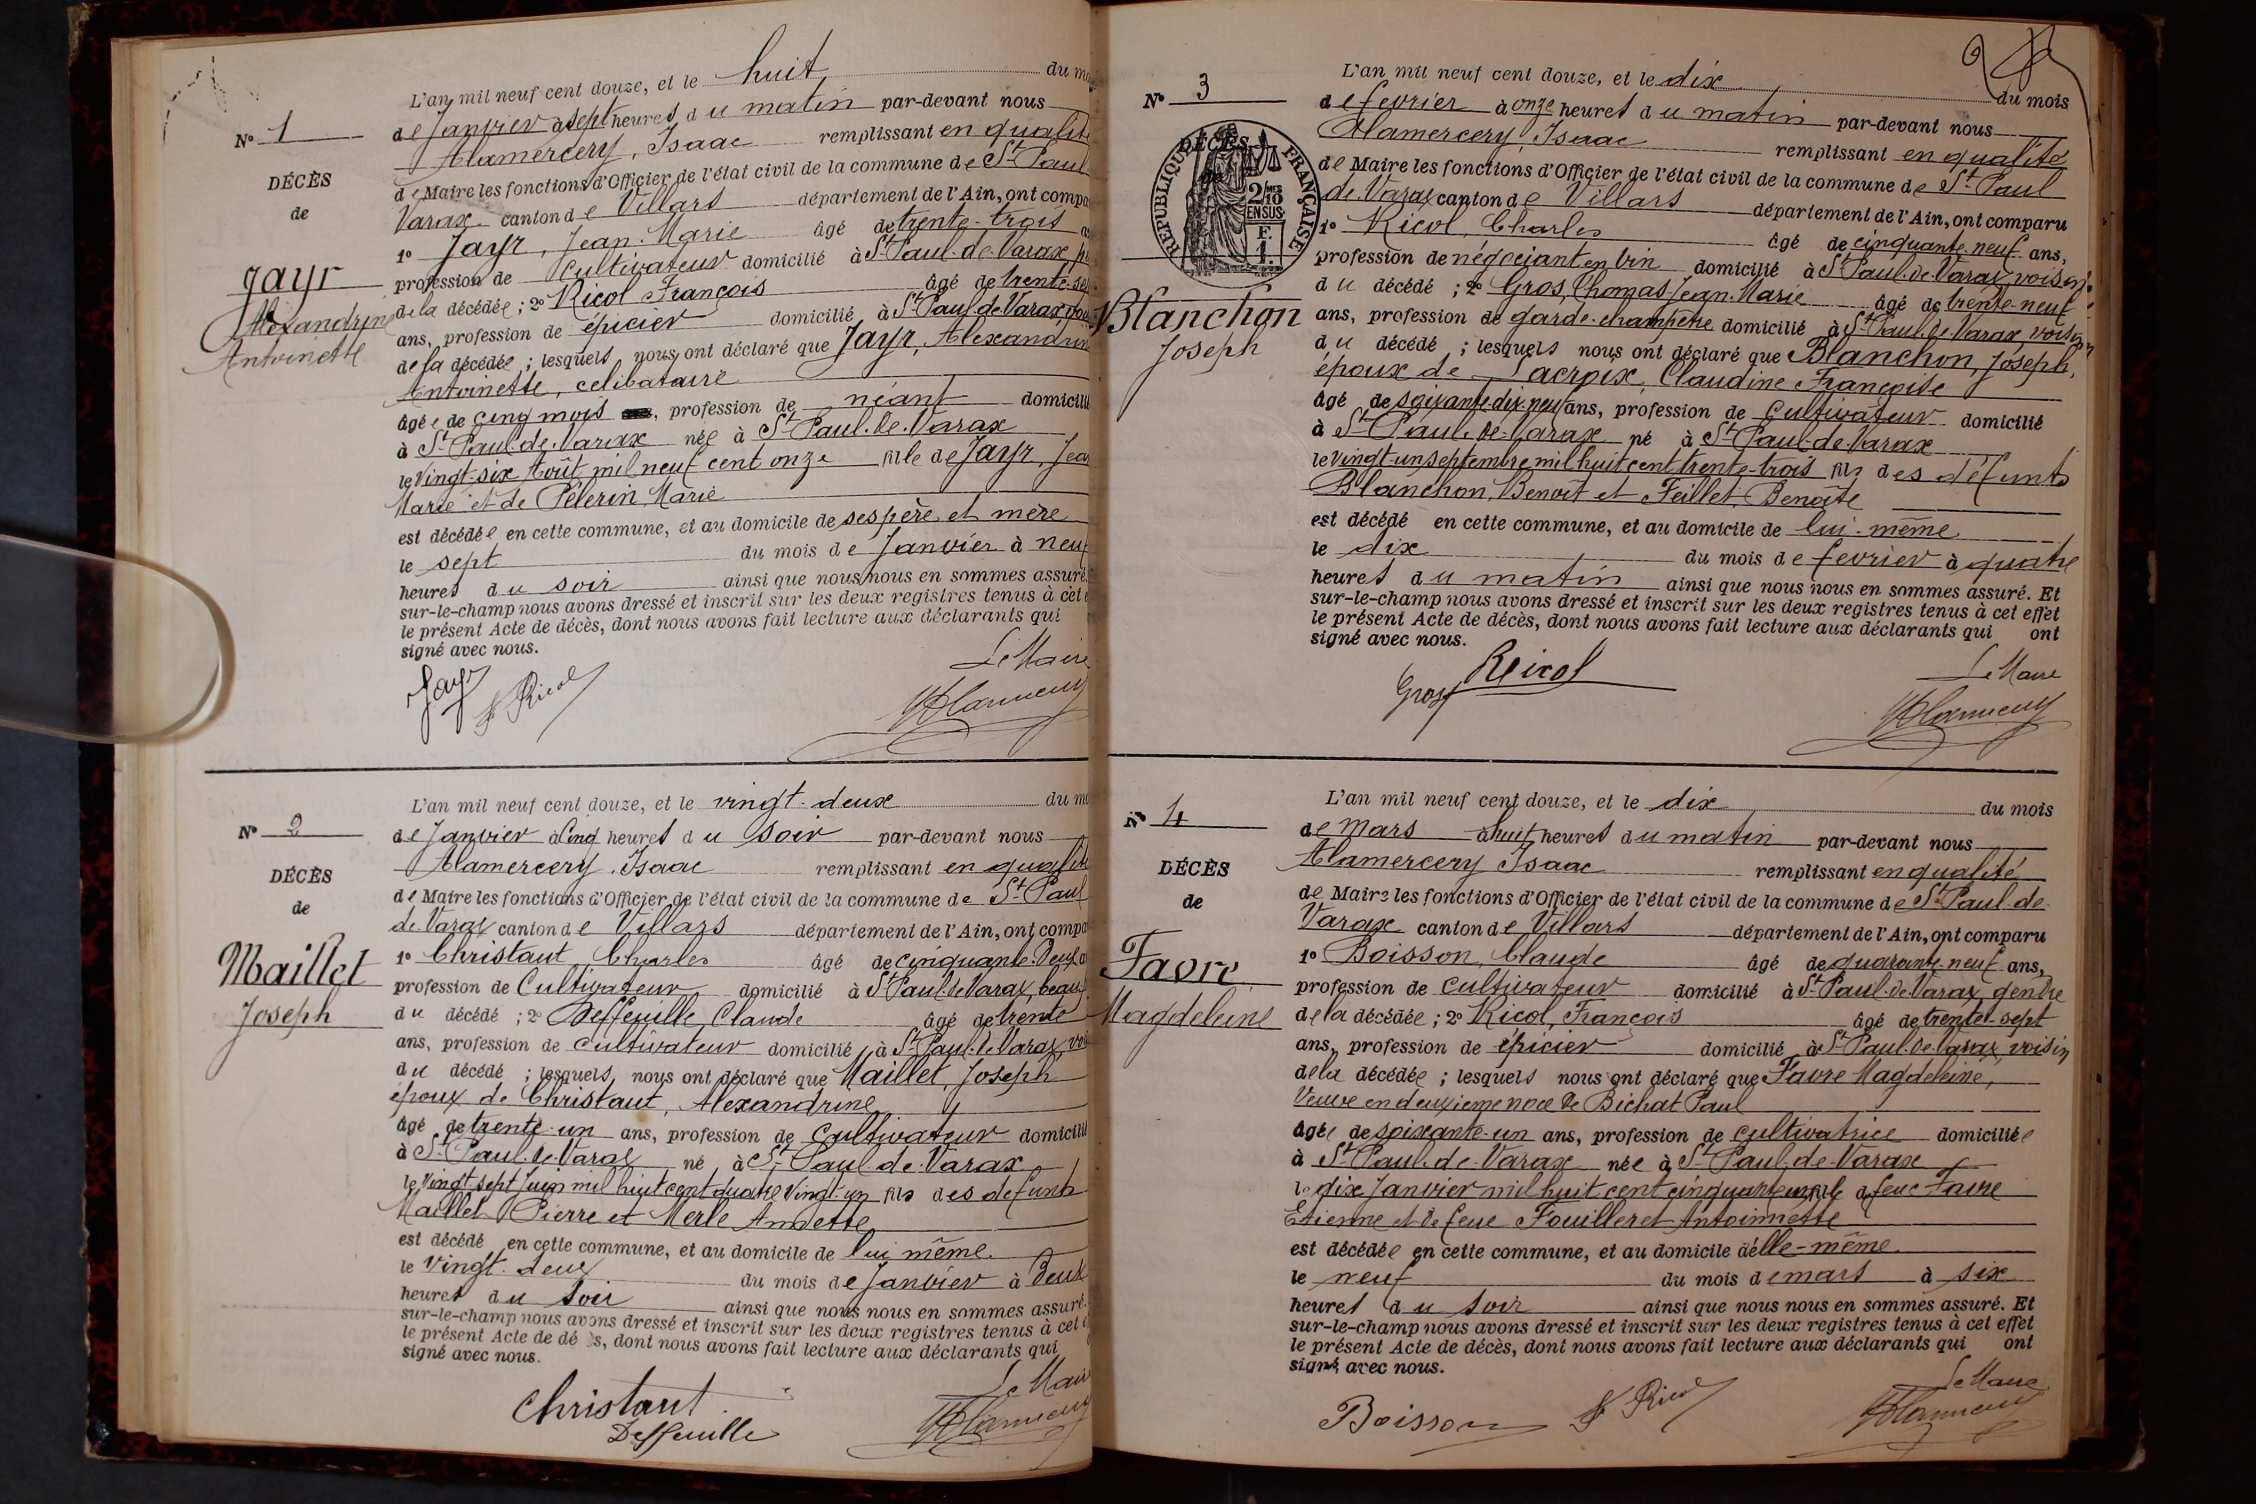 L'an mil neuf cent douze, et le huit du
N° 1
de Janvier à sept heures du matin par-devant nous
Alamercery, Isaac remplissant en qualité
DÉCÈS
de Maire les fonctions d'Officier de l'état civil de la commune de St Paul
de
Varax canton de Villars département de l'Ain, ont compa
1° Jayr, Jean-Marie âgé de trente-trois
Jayr
profession de cultivateur domicilié à St Paul-de-Varax,
Alexandrine
de la décédée ; 2° Ricol François âgé de trente-se
Antoinette
ans, profession de épicier domicilié à St Paul de Varax,
de la décédée ; lesquels nous ont déclaré que Jayr, Alexandrine
Antoinette, celibataire
âgée de cinq mois, profession de néant domicilié
à St Paul-de-Varax née à St Paul-de-Varax
le vingt-six Août mil neuf cent onze fille de Jayr, Jean
Marie et de Pélerin, Marie
est décédée en cette commune, et au domicile de ses père et mère
le sept du mois de Janvier à neuf
heures du soir ainsi que nous nous en sommes assuré.
sur-le-champ nous avons dressé et inscrit sur les deux registres tenus à cet
le présent Acte de décès, dont nous avons fait lecture aux déclarants qui
signé avec nous.
Le Maire
Jayr F Ricol
L'an mil neuf cent douze, et le vingt-deux du
N° 2
de Janvier à cinq heures du soir par-devant nous
Alamercery, Isaac remplissant en qualité
DÉCÈS
de Maire les fonctions d'Officier de l'état civil de la commune de St Paul
de
de Varax canton de Villars département de l'Ain, ont compa
Maillet
1° Christaut, Charles âgé de cinquante-deux
profession de Cultivateur domicilié à St Paul de Varax, beau
Joseph
du décédé ; 2° Deffeuille, Claude âgé de trente
ans, profession de cultivateur domicilié à St Paul-de-Varax,
du décédé ; lesquels nous ont déclaré que Maillet, Joseph
époux de Christaut, Alexandrine
âgé de trente-un ans, profession de cultivateur domicilié
à St Paul-de-Varax né à St Paul-de-Varax
le vingt-sept Juin mil huit cent quatre vingt-un fils des défunts
Maillet Pierre et Merle Annette
est décédé en cette commune, et au domicile de lui même.
le vingt-deux du mois de Janvier à deux
heures du soir ainsi que nous nous en sommes assuré.
sur-le-champ nous avons dressé et inscrit sur les deux registres tenus à cet
le présent Acte de dé s, dont nous avons fait lecture aux déclarants qui
signé avec nous.
Le Maire
Christaut
Deffeuille
L'an mil neuf cent douze, et le dix du mois
N° 3
de fevrier à onze heures du matin par-devant nous
Alamercery, Isaac remplissant en qualité
DÉCÈS
de
RÉPUBLIQUE FRANÇAISE
2/10 EN SUS
de Maire les fonctions d'Officier de l'état civil de la commune de St Paul
de Varax canton de Villars département de l'Ain, ont comparu
1° Ricol, Charles âgé de cinquante-neuf ans,
profession de négociant en vin domicilié à St Paul-de-Varax, voisin
Blanchon
Joseph
du décédé ; 2° Gros, Thomas Jean-Marie âgé de trente-neuf
ans, profession de garde-champêtre domicilié à St Paul de Varax, voisin
du décédé ; lesquels nous ont déclaré que Blanchon, Joseph,
époux de Lacroix, Claudine Françoise
âgé de soixante dix-neuf ans, profession de cultivateur domicilié
à St Paul-de-Varax né à St Paul-de-Varax
le vingt-un septembre mil huit cent trente-trois fils des défunts
Blanchon, Benoît et Feillet, Benoîte
est décédé en cette commune, et au domicile de lui-même
le dix du mois de fevrier à quatre
heures du matin ainsi que nous nous en sommes assuré. Et
sur-le-champ nous avons dressé et inscrit sur les deux registres tenus à cet effet
le présent Acte de décès, dont nous avons fait lecture aux déclarants qui ont
signé avec nous.
Le Maire
Gros Ricol
L'an mil neuf cent douze, et le dix du mois
N° 4
de Mars à huit heures du matin par-devant nous
Alamercery Isaac remplissant en qualité
DÉCÈS
de Maire les fonctions d'Officier de l'état civil de la commune de St Paul-de-
de
Varax canton de Villars département de l'Ain, ont comparu
Favre
1° Boisson, Claude âgé de quarante-neuf ans,
profession de cultivateur domicilié à St Paul-de-Varax, gendre
Magdeleine
de la décédée ; 2° Ricol, François âgé de trente-sept
ans, profession de épicier domicilié à St Paul-de-Varax, voisin
de la décédée ; lesquels nous ont déclaré que Favre Magdeleine,
Veuve en deuxieme noce de Bichat Paul
âgée de soixante-un ans, profession de cultivatrice domiciliée
à St Paul-de-Varax née à St Paul-de-Varax
le dix Janvier mil huit cent cinquante un fille de feu Favre
Etienne et de feue Fouilleret Antoinnette
est décédée en cette commune, et au domicile d'elle-même.
le neuf du mois de mars à six
heures du soir ainsi que nous nous en sommes assuré. Et
sur-le-champ nous avons dressé et inscrit sur les deux registres tenus à cet effet
le présent Acte de décès, dont nous avons fait lecture aux déclarants qui ont
signé avec nous.
Le Maire
Boisson F Ricol